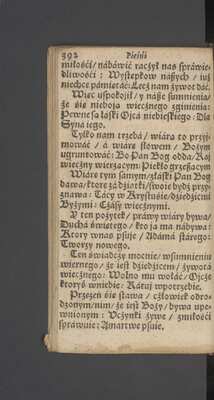 392 Pieśni
miłości/ nábáwić raczył nas spráwie-
dliwości : Występkow nászych / iuż
niechce pámiętáć: Lecz nam żywot dáć.
Więc uspokoił / y násze sumnienia/
że się nieboją wiecznego zginienia:
Pewne są łáski Oycá niebieskiego : Dla
Syná iego.
Tylko nam trzebá / wiárá to przyi-
mowáć / á wiáre słowem / Bożym
ugruntowáć: Bo Pan Bog oddá / Ráy
wieczny wierzącym: Piekło grzeszącym
Wiáre tym sámym / z łáski Pan Bog
dawa / ktore zá dziatki / swoie bydź przy-
znawa: Tácy w Krystusie / dziedzicmi
Bożymi : Czásy wiecznymi.
Y ten pożytek / práwy wiáry bywa/
Duchá świętego / kto ją ma nábywa:
Ktory w nas psuie / Adámá stárego:
Tworzy nowego.
Ten świádczy mocnie / w sumnieniu
wiernego / że iest dziedzicem / żywotá
wiecznego: Wolno mu wołáć / Oycze
ktoryś w niebie: Rátuy w potrzebie.
Przezeń się stawa / człowiek odro-
dzonym / nim / że iest Boży / bywa upe-
wnionym : Uczynki żywe / z miłości
spráwuie : A martwe psuie.